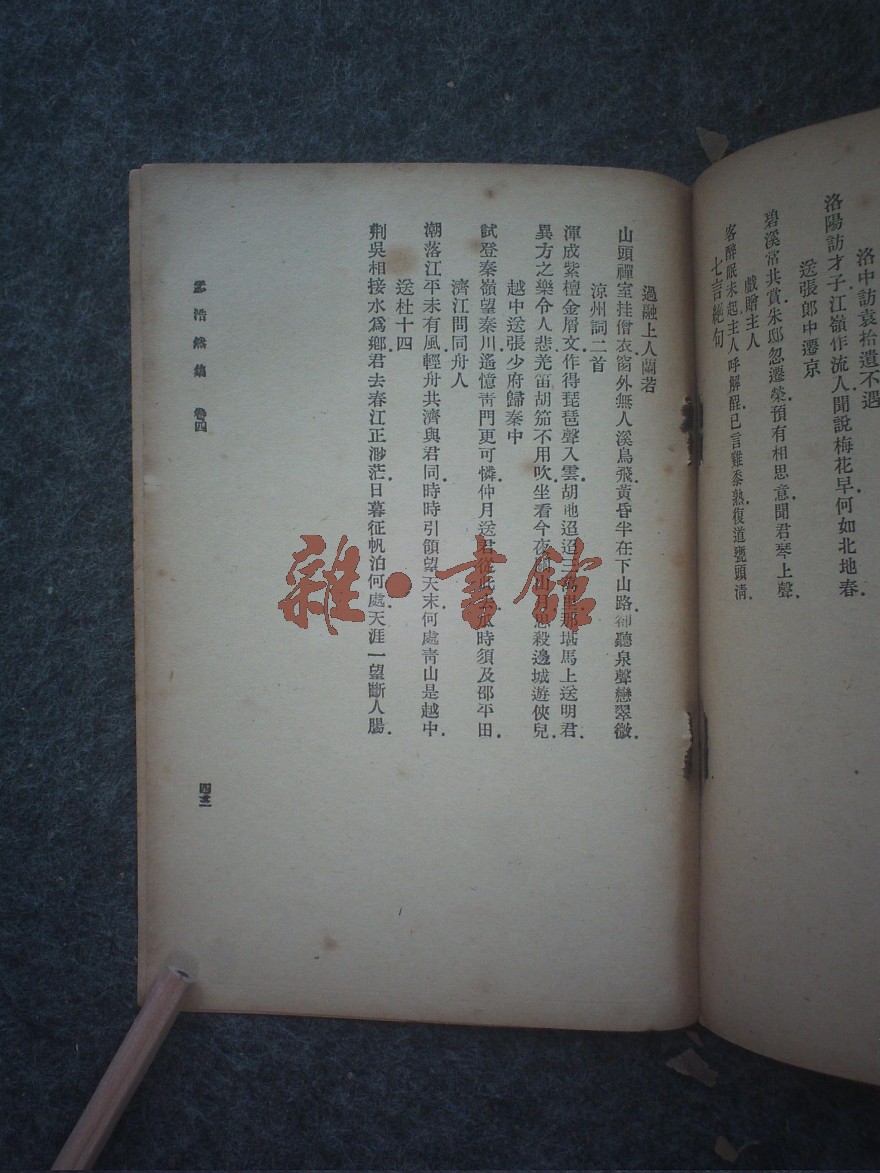 洛中訪袁拾遺不遇
洛陽訪才子江嶺作流人聞說梅花早何如北地春
送張郎中遷京
碧溪常共賞朱邸忽遷榮預有相思意聞君琴上聲
戲贈主人
客醉眠未起主人呼解酲已言雞黍熟復道甕頭清
七言絕句
過融上人蘭若
山頭禪室挂僧衣窗外無人溪鳥飛黃昏半在下山路卻聽泉聲戀翠微
涼州詞二首
渾成紫檀金屑文作得琵琶聲入雲胡地迢迢三萬里那堪馬上送明君
異方之樂令人悲羌笛胡笳不用吹坐看今夜關山月思殺邊城遊俠兒
越中送張少府歸秦中
試登秦嶺望秦川遙憶靑門更可憐仲月送君從此去瓜時須及邵平田
濟江問同舟人
潮落江平未有風輕舟共濟與君同時時引領望天末何處靑山是越中
送杜十四
荆吳相接水爲鄉君去春江正渺茫日暮征帆泊何處天涯一望斷人腸
孟浩然集 卷四
四三
雜·書館